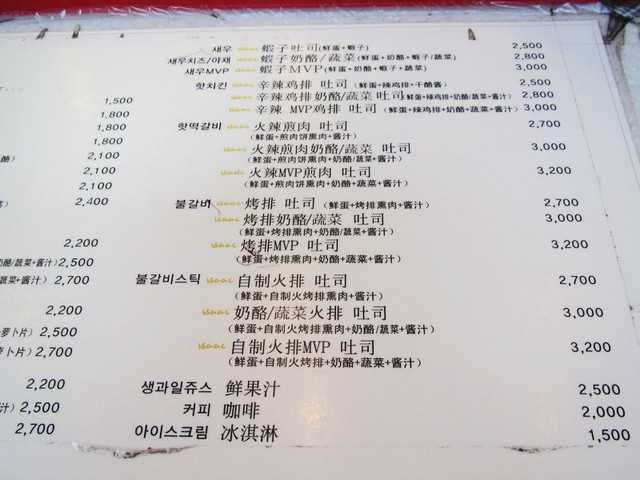 새우 isaac 蝦子吐司(鲜蛋+蝦子) 2,500
새우치즈/야채 isaac 蝦子奶酪/蔬菜(鲜蛋+奶酪+蝦子/蔬菜) 2,800
새우MVP isaac 蝦子MVP(鲜蛋+奶酪+蝦子+蔬菜) 3,000
핫치킨 isaac 辛辣鸡排 吐司 (鲜蛋+辣鸡排+干酪酱) 2,500
isaac 辛辣鸡排奶酪/蔬菜吐司(鲜蛋+辣鸡排+奶酪/蔬菜+酱汁) 2,800
isaac 辛辣 MVP鸡排 吐司 (鲜蛋+辣鸡排+奶酪+蔬菜+酱汁) 3,000
1,500
핫떡갈비 isaac 火辣煎肉 吐司 2,700
1,800
(鲜蛋+煎肉饼熏肉+酱汁)
1,800
isaac 火辣煎肉奶酪/蔬菜 吐司 3,000
1,800
(鲜蛋+煎肉饼熏肉+奶酪/蔬菜+酱汁)
酪) 2,100
isaac 火辣MVP煎肉 吐司 3,200
2,100
(鲜蛋+煎肉饼熏肉+奶酪+蔬菜+酱汁)
2,100
불갈비 isaac 烤排 吐司 (鲜蛋+烤排熏肉+酱汁) 2,700
2,400
isaac 烤排奶酪/蔬菜 吐司 3,000
(鲜蛋+烤排熏肉+奶酪/蔬菜+酱汁)
2,200
isaac 烤排MVP 吐司 3,200
(鲜蛋+烤排熏肉+奶酪+蔬菜+酱汁)
奶酪/蔬菜+酱汁) 2,500
蔬菜+酱汁) 2,700
불갈비스틱 isaac 自制火排 吐司 2,700
(鲜蛋+自制火烤排熏肉+酱汁)
2,200
isaac 奶酪/蔬菜火排 吐司 3,000
(鲜蛋+自制火烤排熏肉+奶酪/蔬菜+酱汁)
萝卜片) 2,500
isaac 自制火排MVP 吐司 3,200
萝卜片) 2,700
(鲜蛋+自制火烤排熏肉+奶酪+蔬菜+酱汁)
2,200
생과일쥬스 鲜果汁 2,500
汁) 2,500
커피 咖啡 2,000
2,700
아이스크림 冰淇淋 1,500